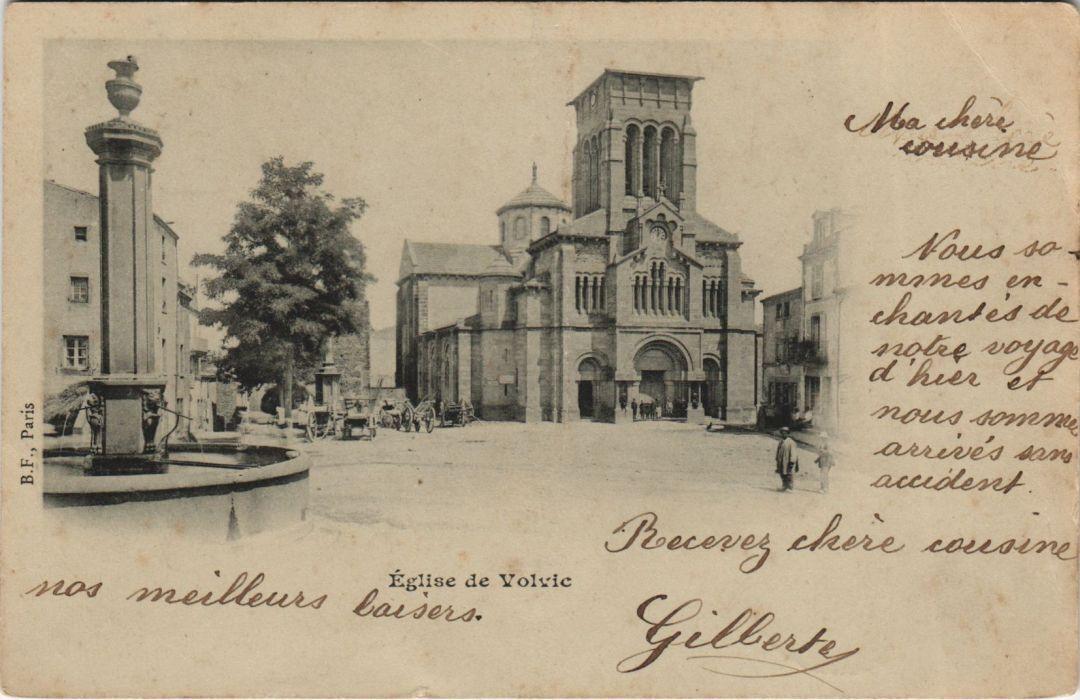 Ma chère
cousine
Nous so-
mmes en-
chantés de
notre voyage
d'hier et
nous sommes
arrivés sans
accident.
Recevez chère cousine
nos meilleurs baisers.
Gilberte
Église de Volvic
B.F., Paris